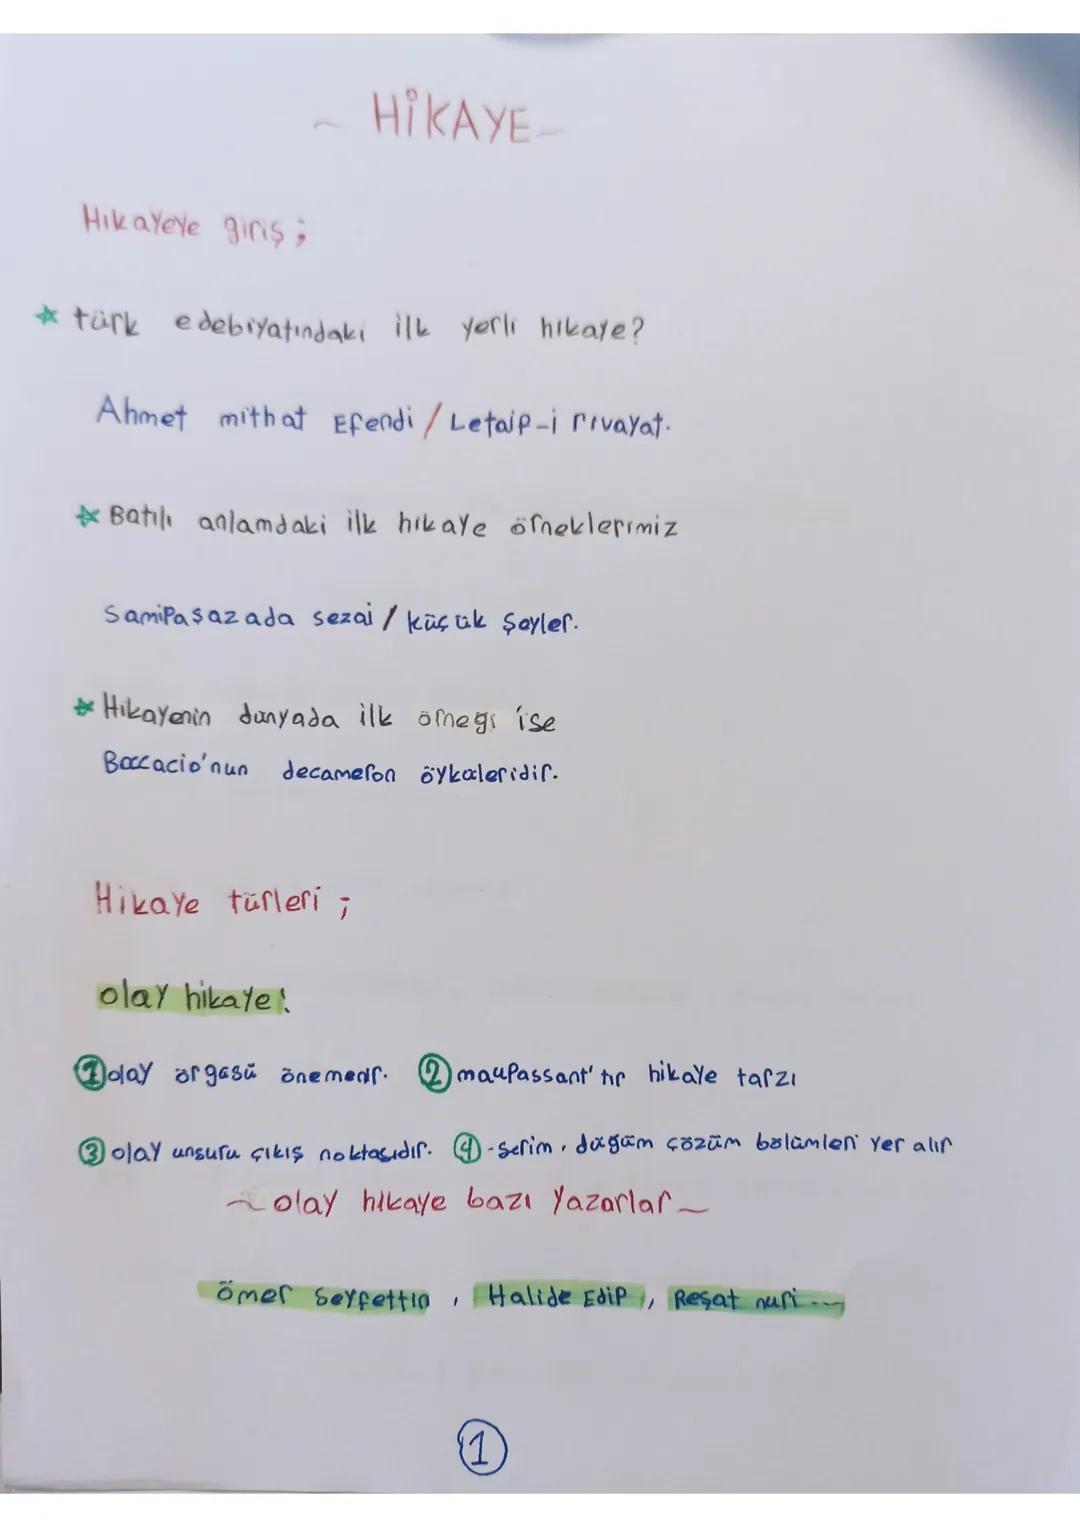 ~ HİKAYE ~
Hikayeye giriş ;
türk edebiyatındaki ilk yerli hikaye?
Ahmet mithat Efendi / Letaip-i rivayat.
Batılı anlamdaki ilk hikaye örneklerimiz
Samipaşazada sezai / küçük şeyler.
Hikayenin dünyada ilk örneği ise
Boccacio'nun decameron öykeleridir.
Hikaye türleri ;
olay hikaye:
1 olay örgüsü önemlidir. 2 maupassant'tır hikaye tarzı
3 olay unsuru çıkış noktasıdır. 4 - serim, düğüm çözüm bölümleri yer alır
~ olay hikaye bazı yazarlar ~
ömer seyfettin, Halide Edip, Reşat nuri ...
1